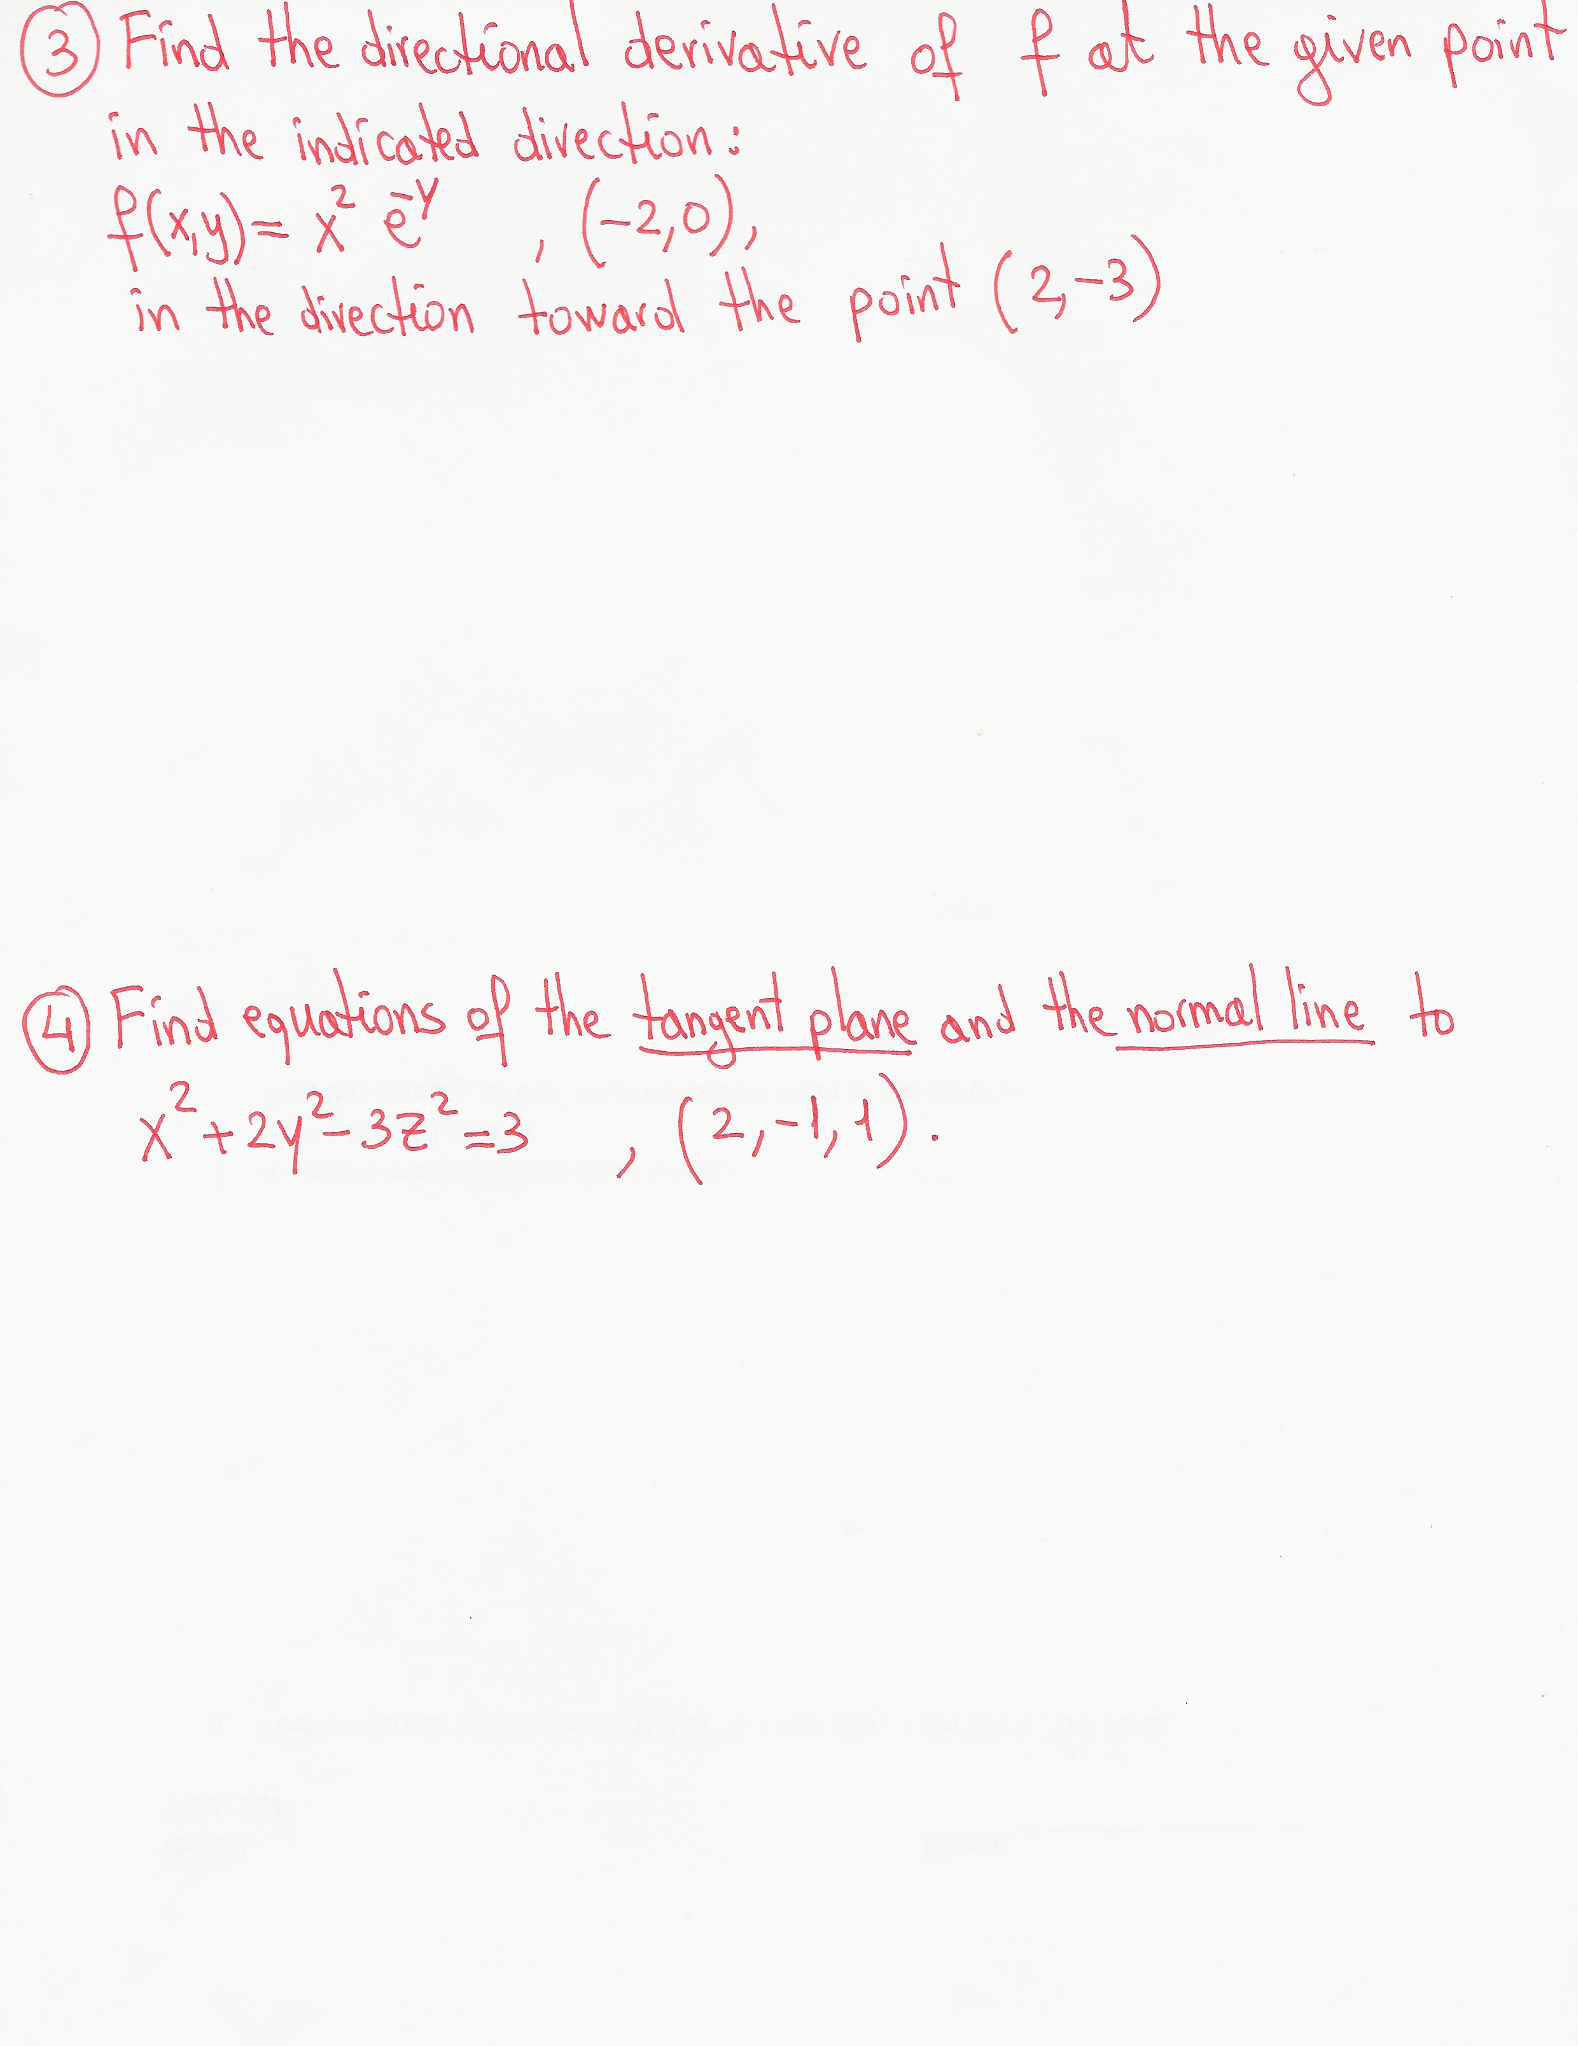 ③ Find the directional derivative of f at the given point
in the indicated direction:
f(x,y) = x² e⁻ʸ , (-2,0),
in the direction toward the point (2,-3)
④ Find equations of the tangent plane and the normal line to
x²+2y²-3z²=3 , (2,-1,1).